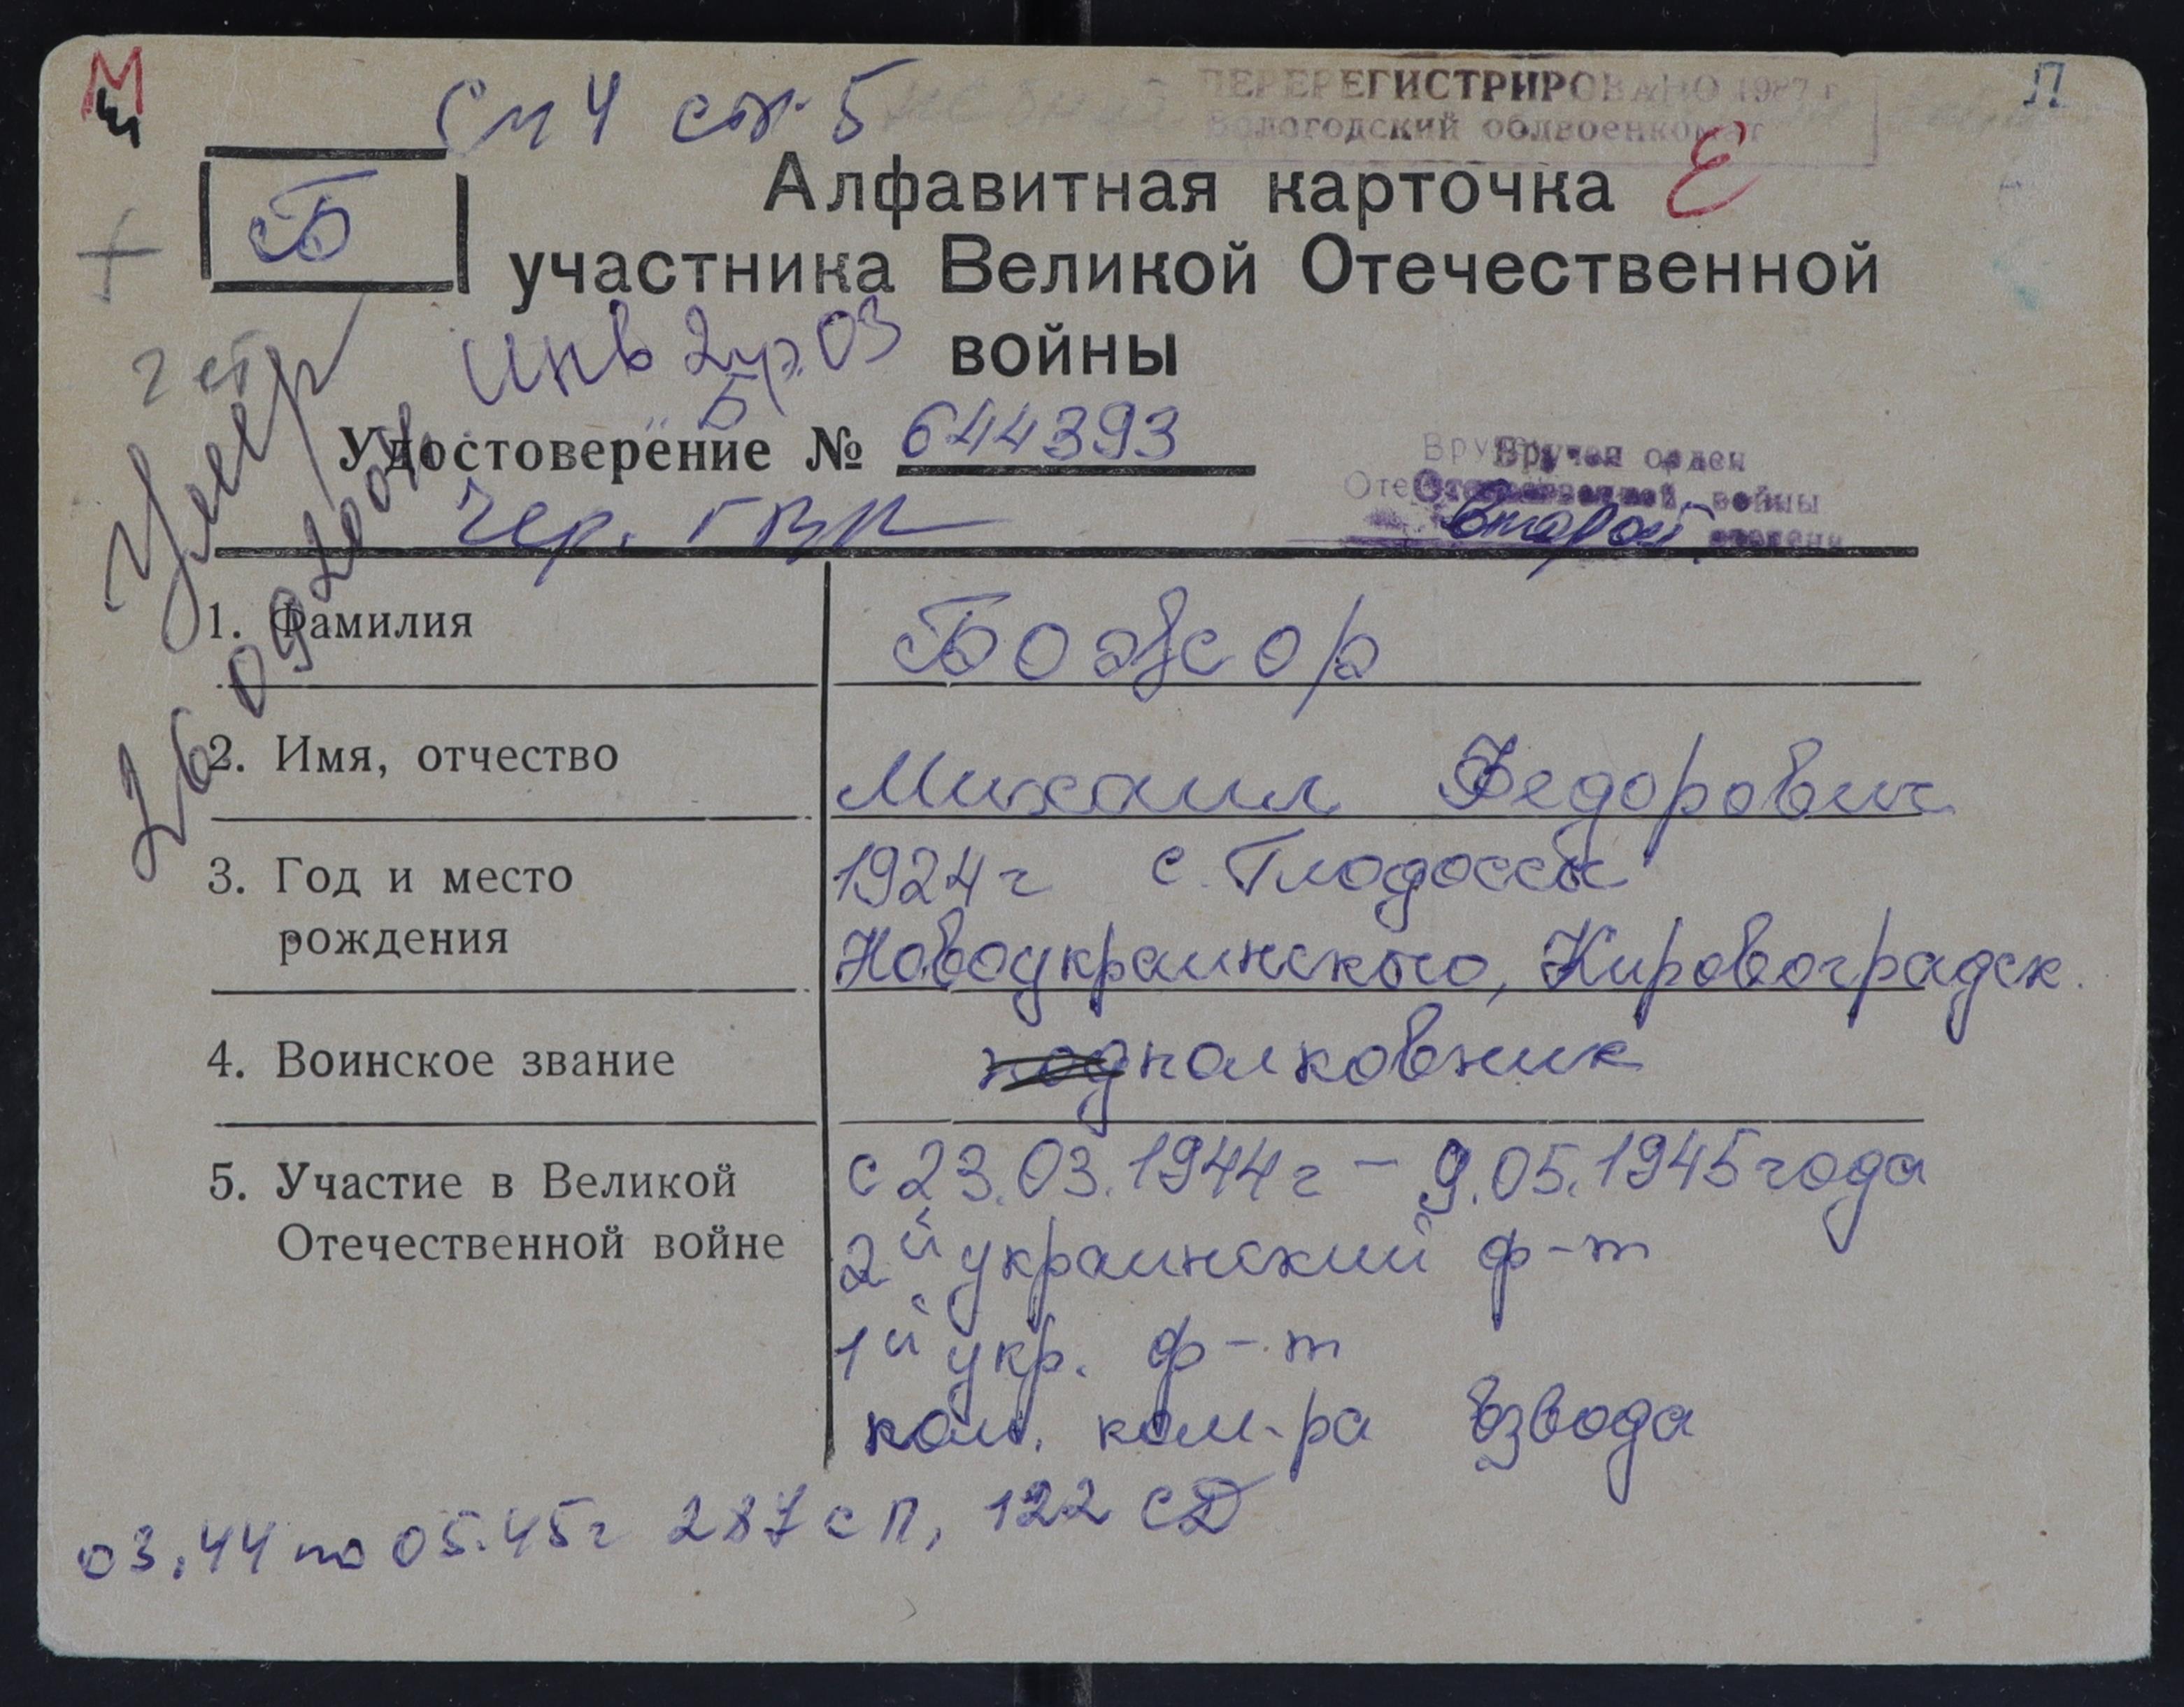 М
см 4 ст. 5
ПЕРЕРЕГИСТРИРОВАНО 1987 г
Вологодский облвоенкомат
П
Б
Алфавитная карточка
Е
участника Великой Отечественной
войны
инв 2 гр. ОЗ
2 ст
Б
Удостоверение № 644393
Чер. ГВК
Вручен орден
Отечественной войны
второй степени
Умер
26 09 2004
1. Фамилия
Бобжор
2. Имя, отчество
Михаил Федорович
3. Год и место
рождения
1924 г с. Глодоссы
Новоукраинского, Кировоградск.
4. Воинское звание
подполковник
5. Участие в Великой
Отечественной войне
с 23.03.1944 г - 9.05.1945 года
2й украинский ф-т
1й укр. ф-т
пом. ком-ра взвода
03.44 по 05.45 г 287 сп, 122 СД